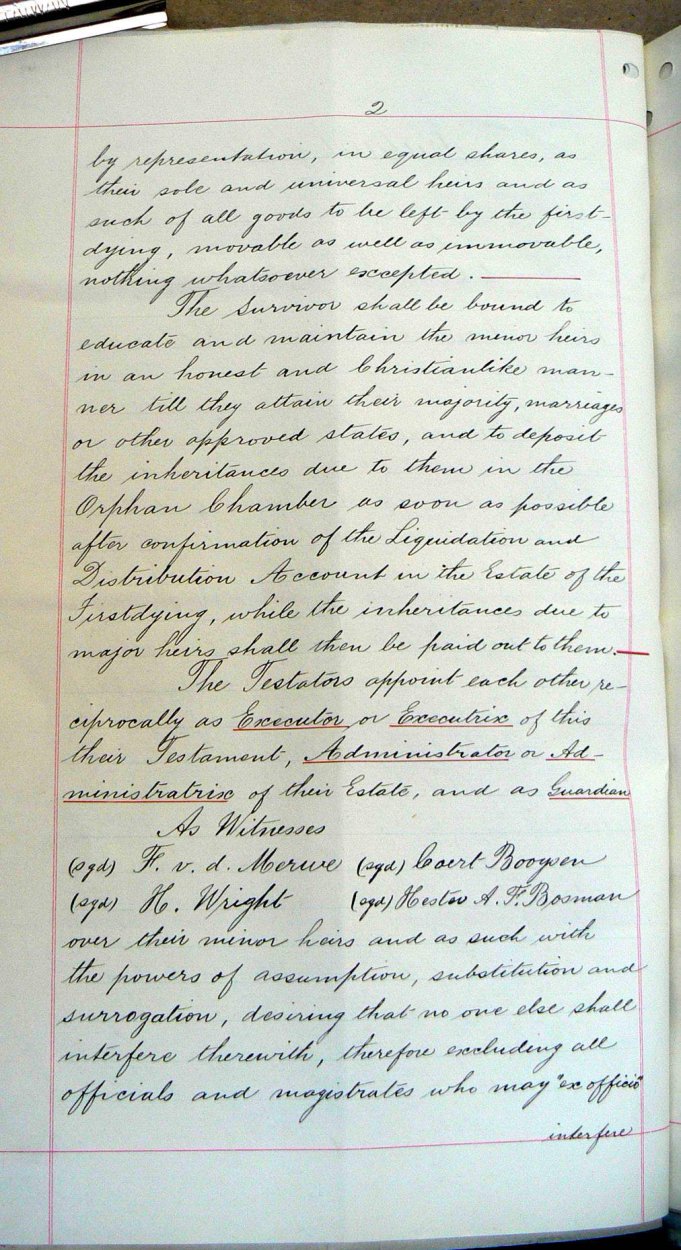 2
by representation, in equal shares, as
their sole and universal heirs and as
such of all goods to be left by the first-
dying, movable as well as immovable,
nothing whatsoever excepted.
The Survivor shall be bound to
educate and maintain the minor heirs
in an honest and Christianlike man-
ner till they attain their majority, marriages
or other approved states, and to deposit
the inheritances due to them in the
Orphan Chamber as soon as possible
after confirmation of the Liquidation and
Distribution Account in the Estate of the
Firstdying, while the inheritances due to
major heirs shall then be paid out to them.
The Testators appoint each other re-
ciprocally as Executor or Executrix of this
their Testament, Administrator or Ad-
ministratrix of their Estate, and as Guardian
As Witnesses
(sgd) F. v. d. Merwe (sgd) Coert Booysen
(sgd) H. Wright (sgd) Hester A. F. Bosman
over their minor heirs and as such with
the powers of assumption, substitution and
surrogation, desiring that no one else shall
interfere therewith, therefore excluding all
officials and magistrates who may "ex officio"
interfere